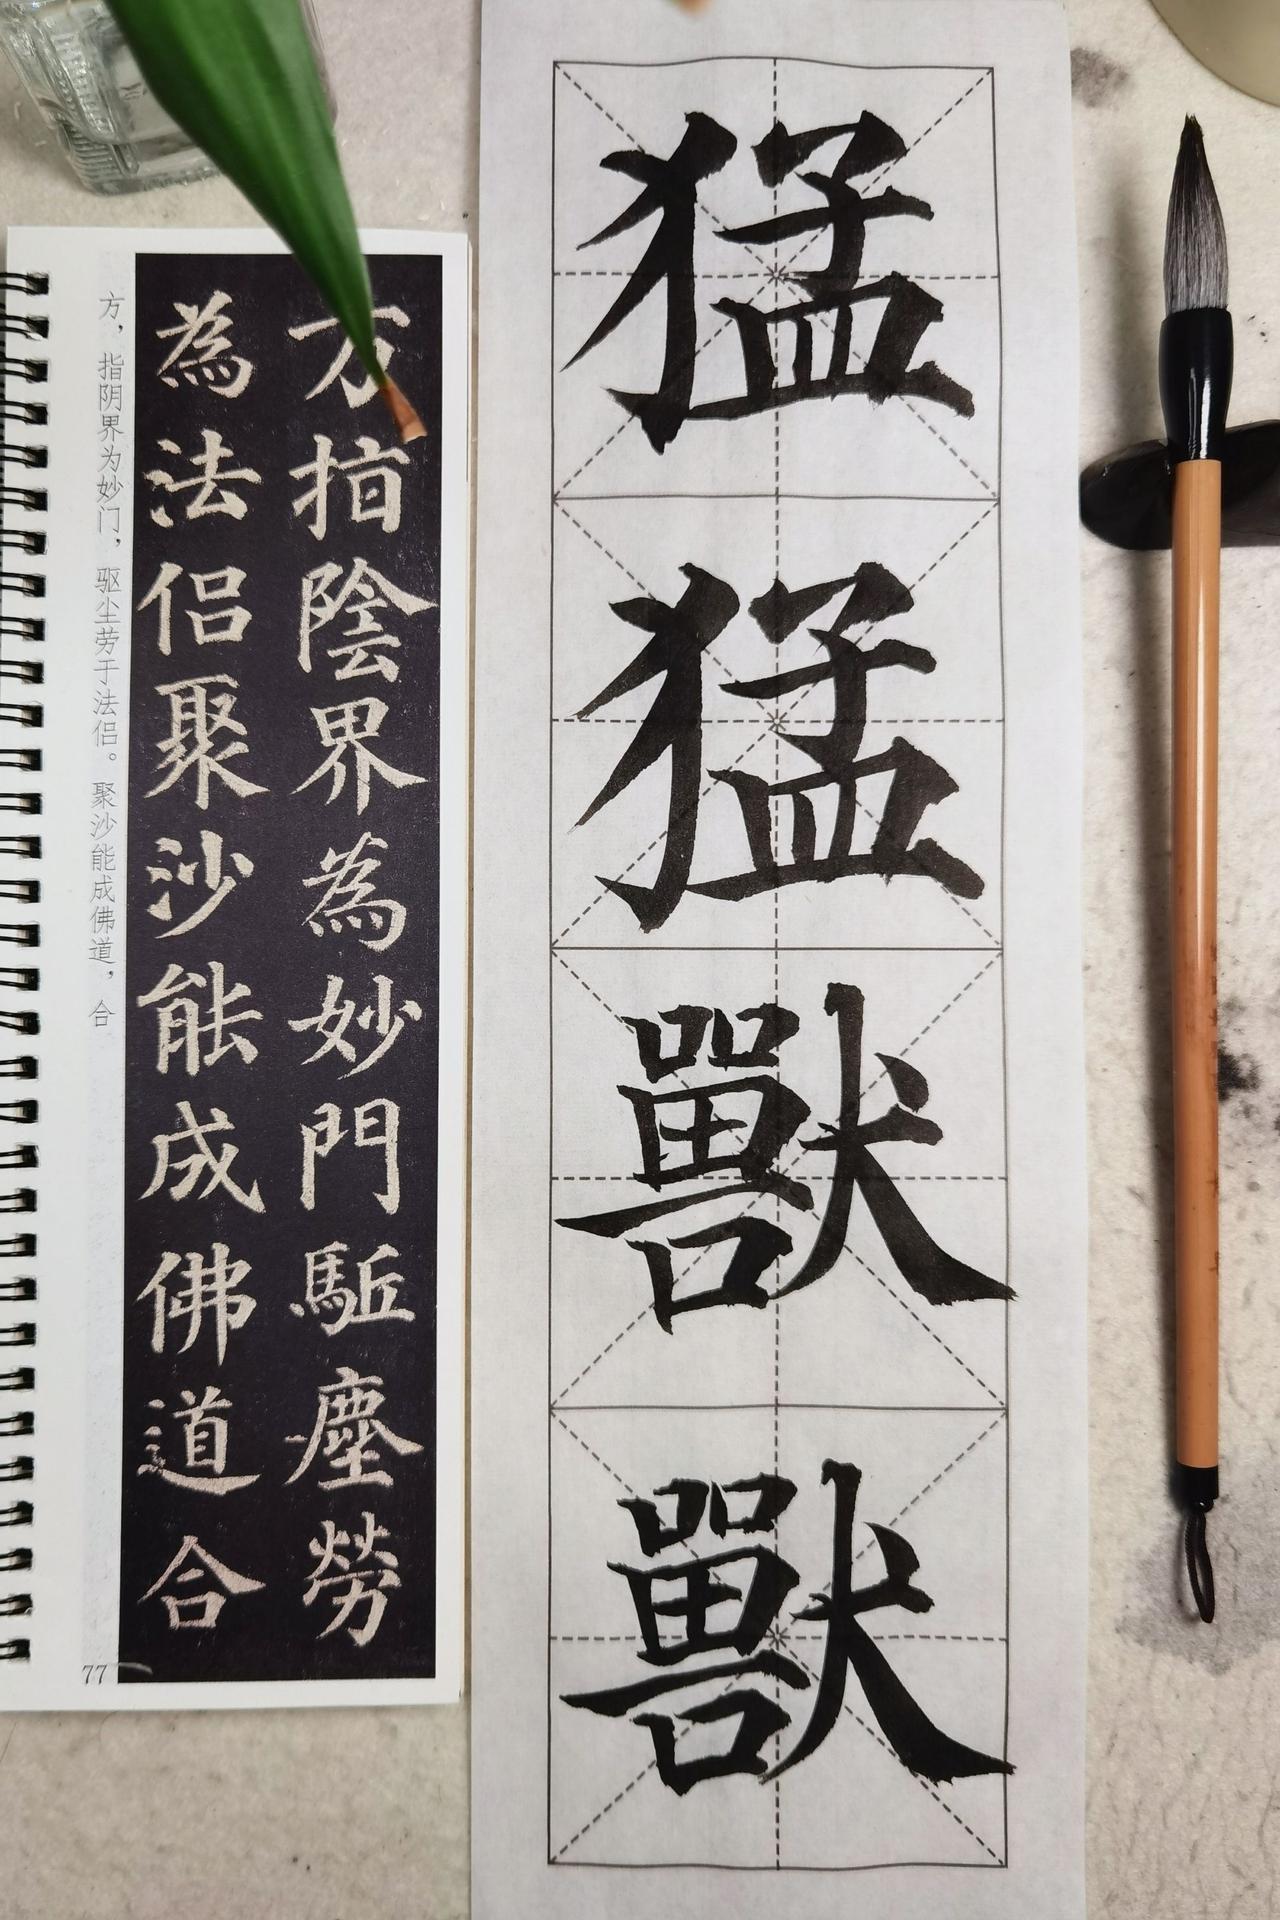 方指陰界為妙門駈塵勞
為法侶聚沙能成佛道合
方，指阴界为妙门，驱尘劳于法侣。聚沙能成佛道，合
77
猛猛獸獸